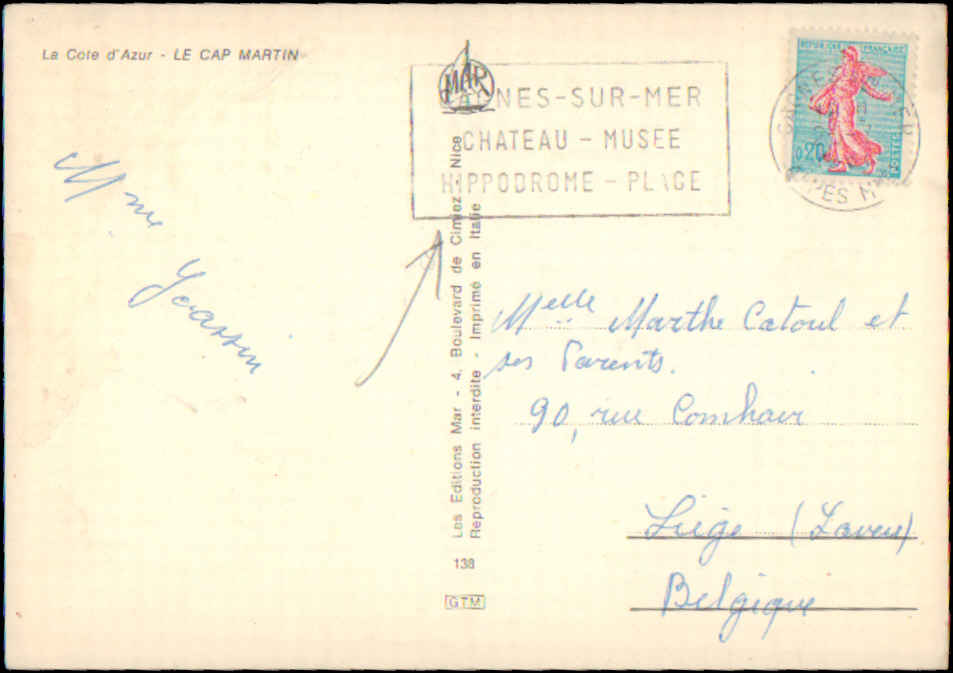 La Cote d'Azur - LE CAP MARTIN
MAR
CAGNES-SUR-MER
CHATEAU - MUSEE
HIPPODROME - PLAGE
REPUBLIQUE FRANÇAISE
0,20
POSTES
Mme
Melle Marthe Catoul et
ses Parents.
90, rue Comhair
Liège (Laveu)
Belgique
Les Editions Mar - 4, Boulevard de Cimiez Nice
Reproduction interdite - Imprimé en Italie
138
GTM